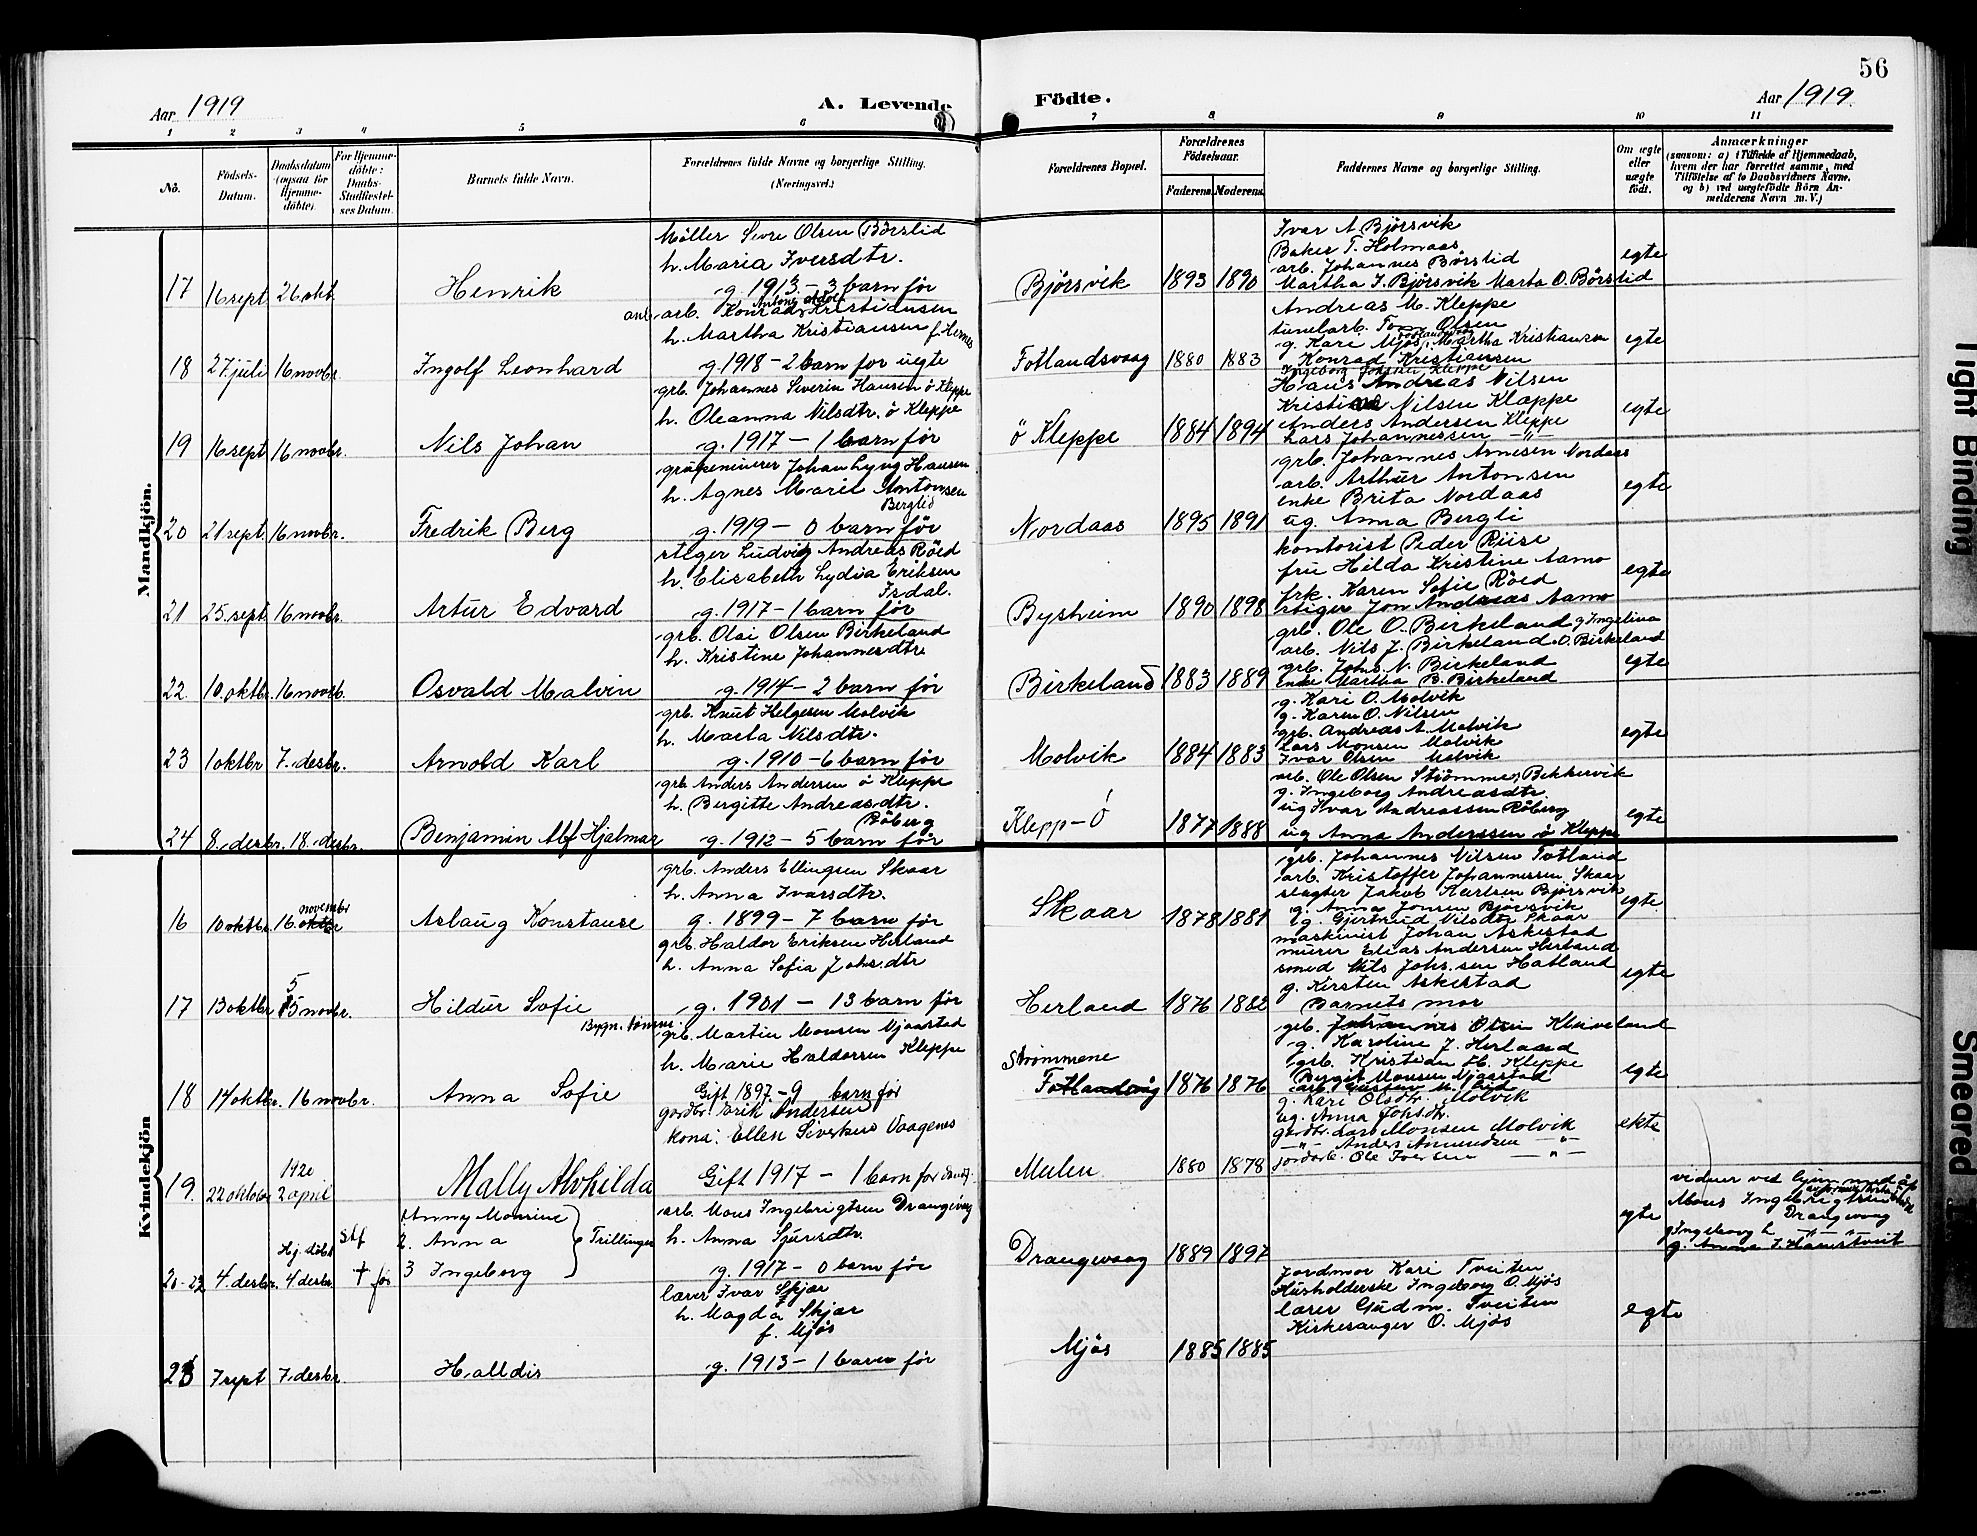 56
Aar 1919
A. Levende Födte.
Aar 1919.
1 2 3 4 5 6 7 8 9 10 11
No.
Födsels-Datum.
Daabsdatum (ogsaa for Hjemme-döbte).
For Hjemme-döbte: Daabs-Stadfæstel-ses Datum.
Barnets fulde Navn.
Forældrenes fulde Navne og borgerlige Stilling.
(Næringsvei.)
Forældrenes Bopæl.
Forældrenes Födselsaar.
Faderens. Moderens.
Faddernes Navne og borgerlige Stilling.
Om ægte eller uægte födt.
Anmærkninger
(saasom: a) i Tilfælde af Hjemmedaab,
hvem der har forrettet samme, med
Tilföielse af to Daabsvidners Navne,
og b) ved uægtefödte Börn An-
melderens Navn m. V.)
Mandkjön.
17 16 sept 26 okt. Henrik
Møller Sivre Olsen Børslid
h. Maria Iversdtr.
g. 1913 - 3 barn før
Bjørsvik 1893 1890
Ivar A Bjørsvik
Baker T. Holmaas
arb. Johannes Børslid
Martha I. Bjørsvik Marta O. Børslid
egte
18 27 juli 16 novbr. Ingolf Leonhard
arb. Konrad Kristiansen
h. Martha Kristiansen f. Hernes
g. 1918 - 2 barn for uegte
Fotlandsvaag 1880 1883
Andreas M. Kleppe
tunelarb. Tom Olsen
g. Kari Mjøs, Martha Kristiansen
Konrad Kristiansen
egte
19 16 sept 16 novbr. Nils Johan
grb. Johannes Severin Hansen ö Kleppe
h. Oleanna Nilsdtr. ö Kleppe
g. 1917 - 1 barn før
ö Kleppe 1884 1894
Hans Andreas Nilsen
Nilsen Klæppe
Anders Andersen Kleppe
Lars Johannessen -"-
egte
20 21 sept. 16 novbr. Fredrik Berg
grubeminerer Johan Lyng Hansen
h. Agnes Marie Antonsen
Berglid
g. 1919 - 0 barn før
Nordaas 1895 1891
grb. Johannes Arnesen Nordaas
arb. Arthur Antonsen
enke Brita Nordaas
ug. Anna Bergli
egte
21 25 sept 16 novbr. Artur Edvard
stiger Ludvig Andreas Röed
h. Elisabeth Lydia Eriksen
Isdal.
g. 1917 - 1 barn før
Bysheim 1890 1898
kontorist Peder Riise
fru Hilda Kristine Aamo
frk. Karen Sofie Röed
stiger Jon Andreas Aamo
egte
22 10. oktbr. 16 novb. Osvald Malvin
grb. Olai Olsen Birkeland
h. Kristine Johannesdtr
g. 1914 - 2 barn før
Birkeland 1883 1889
grb. Ole O. Birkeland g. Ingelina
arb. Nils J. Birkeland O. Birkeland
grb. Johs. N. Birkeland
enke Martha B. Birkeland
egte
23 1 oktbr 7. desbr. Arnold Karl
grb. Knut Helgesen Molvik
h. Marta Nilsdtr.
g. 1910 - 6 barn før
Molvik 1884 1883
g. Kari O. Molvik
g. Karen O. Nilsen
grb. Andreas A. Molvik
Lars Monsen Molvik
Ivar Olsen Molvik
egte
24 8. desbr. 18. desbr. Benjamin Alf Hjalmar
grb. Anders Andersen ö Kleppe
h. Bergitte Andreasdtr.
Röberg
g. 1912 - 5 barn før
Klepp-ö 1877 1888
arb. Ole Olsen Strömme, Bekkervik
g. Ingeborg Andreasdtr.
ug Ivar Andreassen Röberg
ug Anna Anderssen ö Kleppe
egte
Kvindekjön
16 10 oktbr. 16. novembr oktbr Aslaug Konstanse
grb. Anders Ellingsen Skaar
h. Anna Ivarsdtr.
g. 1899 - 7 barn før
Skaar 1878 1881
grb. Johannes Nilsen Fotland
arb. Kristoffer Johannessen Skaar
slagter Jakob Karlsen Bjørsvik
g. Anna Jonsen Bjørsvik
ug. Gjertrud Nilsdtr Skaar
egte
17 13 oktbr 5 novbr. Hildur Sofie
grb. Haldor Eriksen Herland
h. Anna Sofia Johs.dtr
g. 1901 - 13 barn før
Herland 1876 1882
maskinist Johan Askestad
murer Elias Andersen Herland
smed Nils Johs.sen Hatland
g. Kirsten Askestad
Barnets mor
egte
18 14 oktbr. 16 novbr. Anna Sofie
grb. Martin Monsen Mjaastad
h. Marie Haldorsen Kleppe
Gift 1897. - 9 barn før
Strømmene
Fotlandsvåg 1876 1876
grb. Johannes Olsen Kleiveland
g. Karoline J. Herland
grb. Kristian H. Kleppe
Birgit Monsen Mjaastad
egte
19. 22 oktober 1920 2 april Mally Alvhilda
gardbr. Erik Andersen
kona: Ellen Sivertsen Vaagenes
Gift 1917 - 1 barn for
Mulen 1880 1878
g. Kari Olsdtr. Molvik
ug. Anna Johs.dtr.
gardbr. Lars Monsen Molvik
-"- Anders Amundsen -"-
jordarb. Ole Iversen -"-
ekte
20-22 4. desbr. Hj. döbt 4 desbr. Stf † før
Anny Monsine
2. Anna
3 Ingeborg
Trillinger
arb. Mons Ingebrigtsen Drangevåg
h. Anna Sjursdtr.
g. 1917 - 0 barn før
Drangevaag 1889 1897
egte
Mons Ingebrigtsen
Drangevaag
Ingeborg h -"-
23 7 sept 7. desbr Halldis
lærer Ivar Skjær
h. Magda Skjær
f. Mjøs
g. 1913 - 1 barn før
Mjøs 1885 1885
Jordmor Kari Tveiten
Husholderske Ingeborg O. Mjøs
lærer Gudm. Tveiten
Kirkesanger O. Mjøs
egte
Tight Binding
Smeared